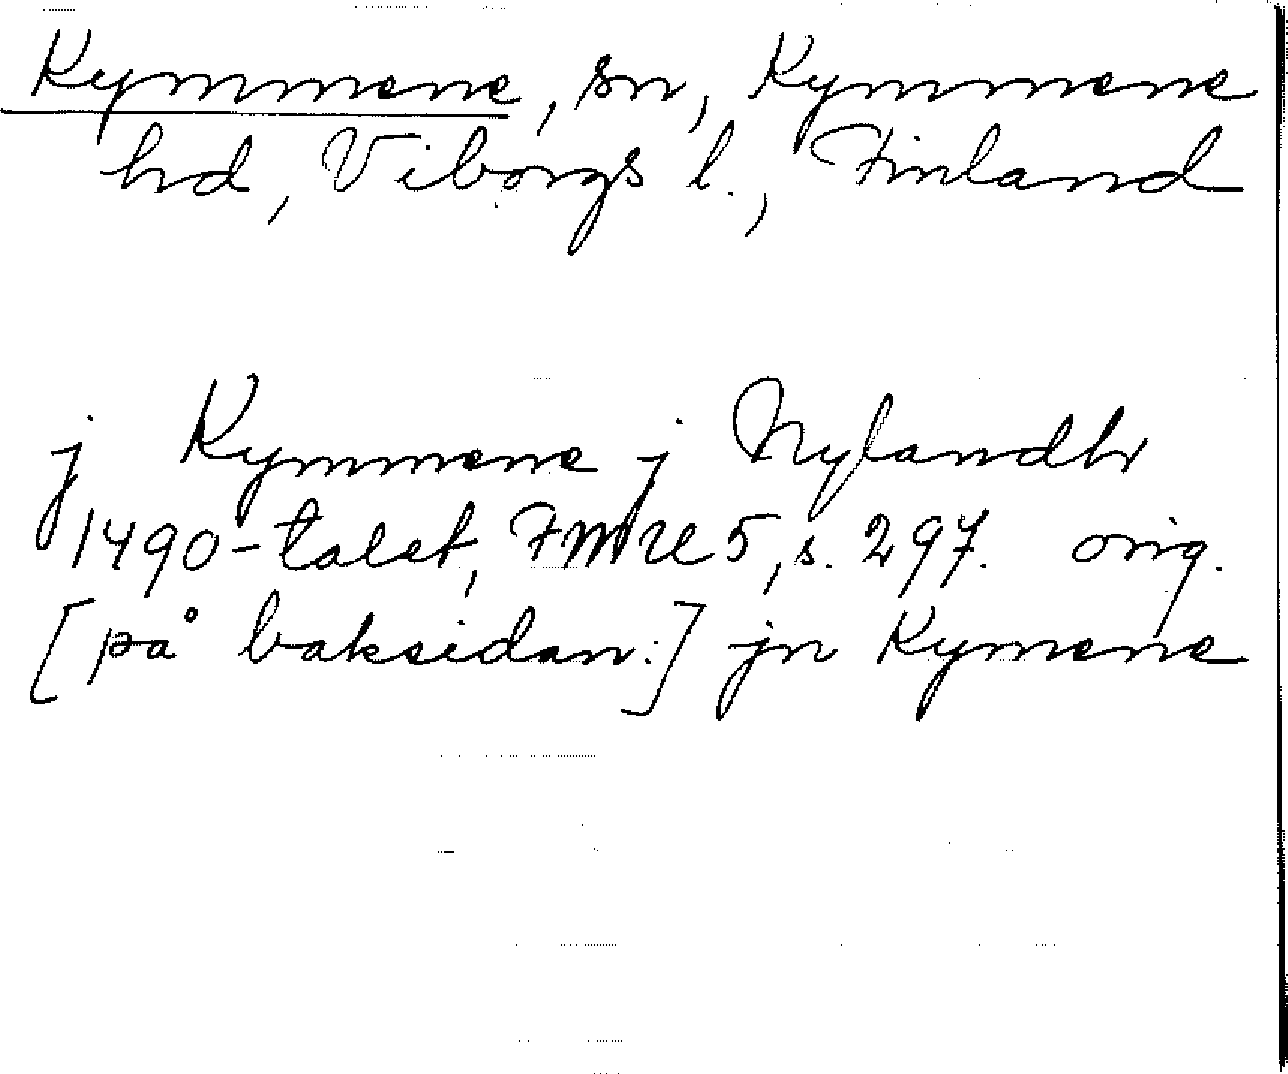 Kymmene, sn, Kymmene
hd, Viborgs l., Finland
j Kymmene j Nylandh
1490-talet, FMU 5, s. 297. orig.
[på baksidan:] jn Kymene